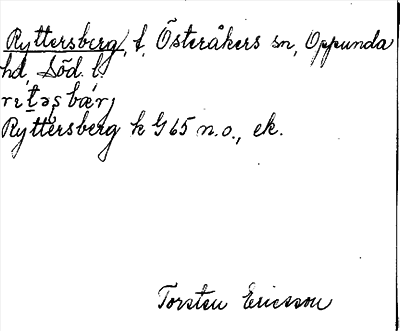 Ryttersberg, t, Österåkers sn, Oppunda
hd, Söd. l.
Ryttersberg k G65 n.o., ek.
Torsten Ericsson